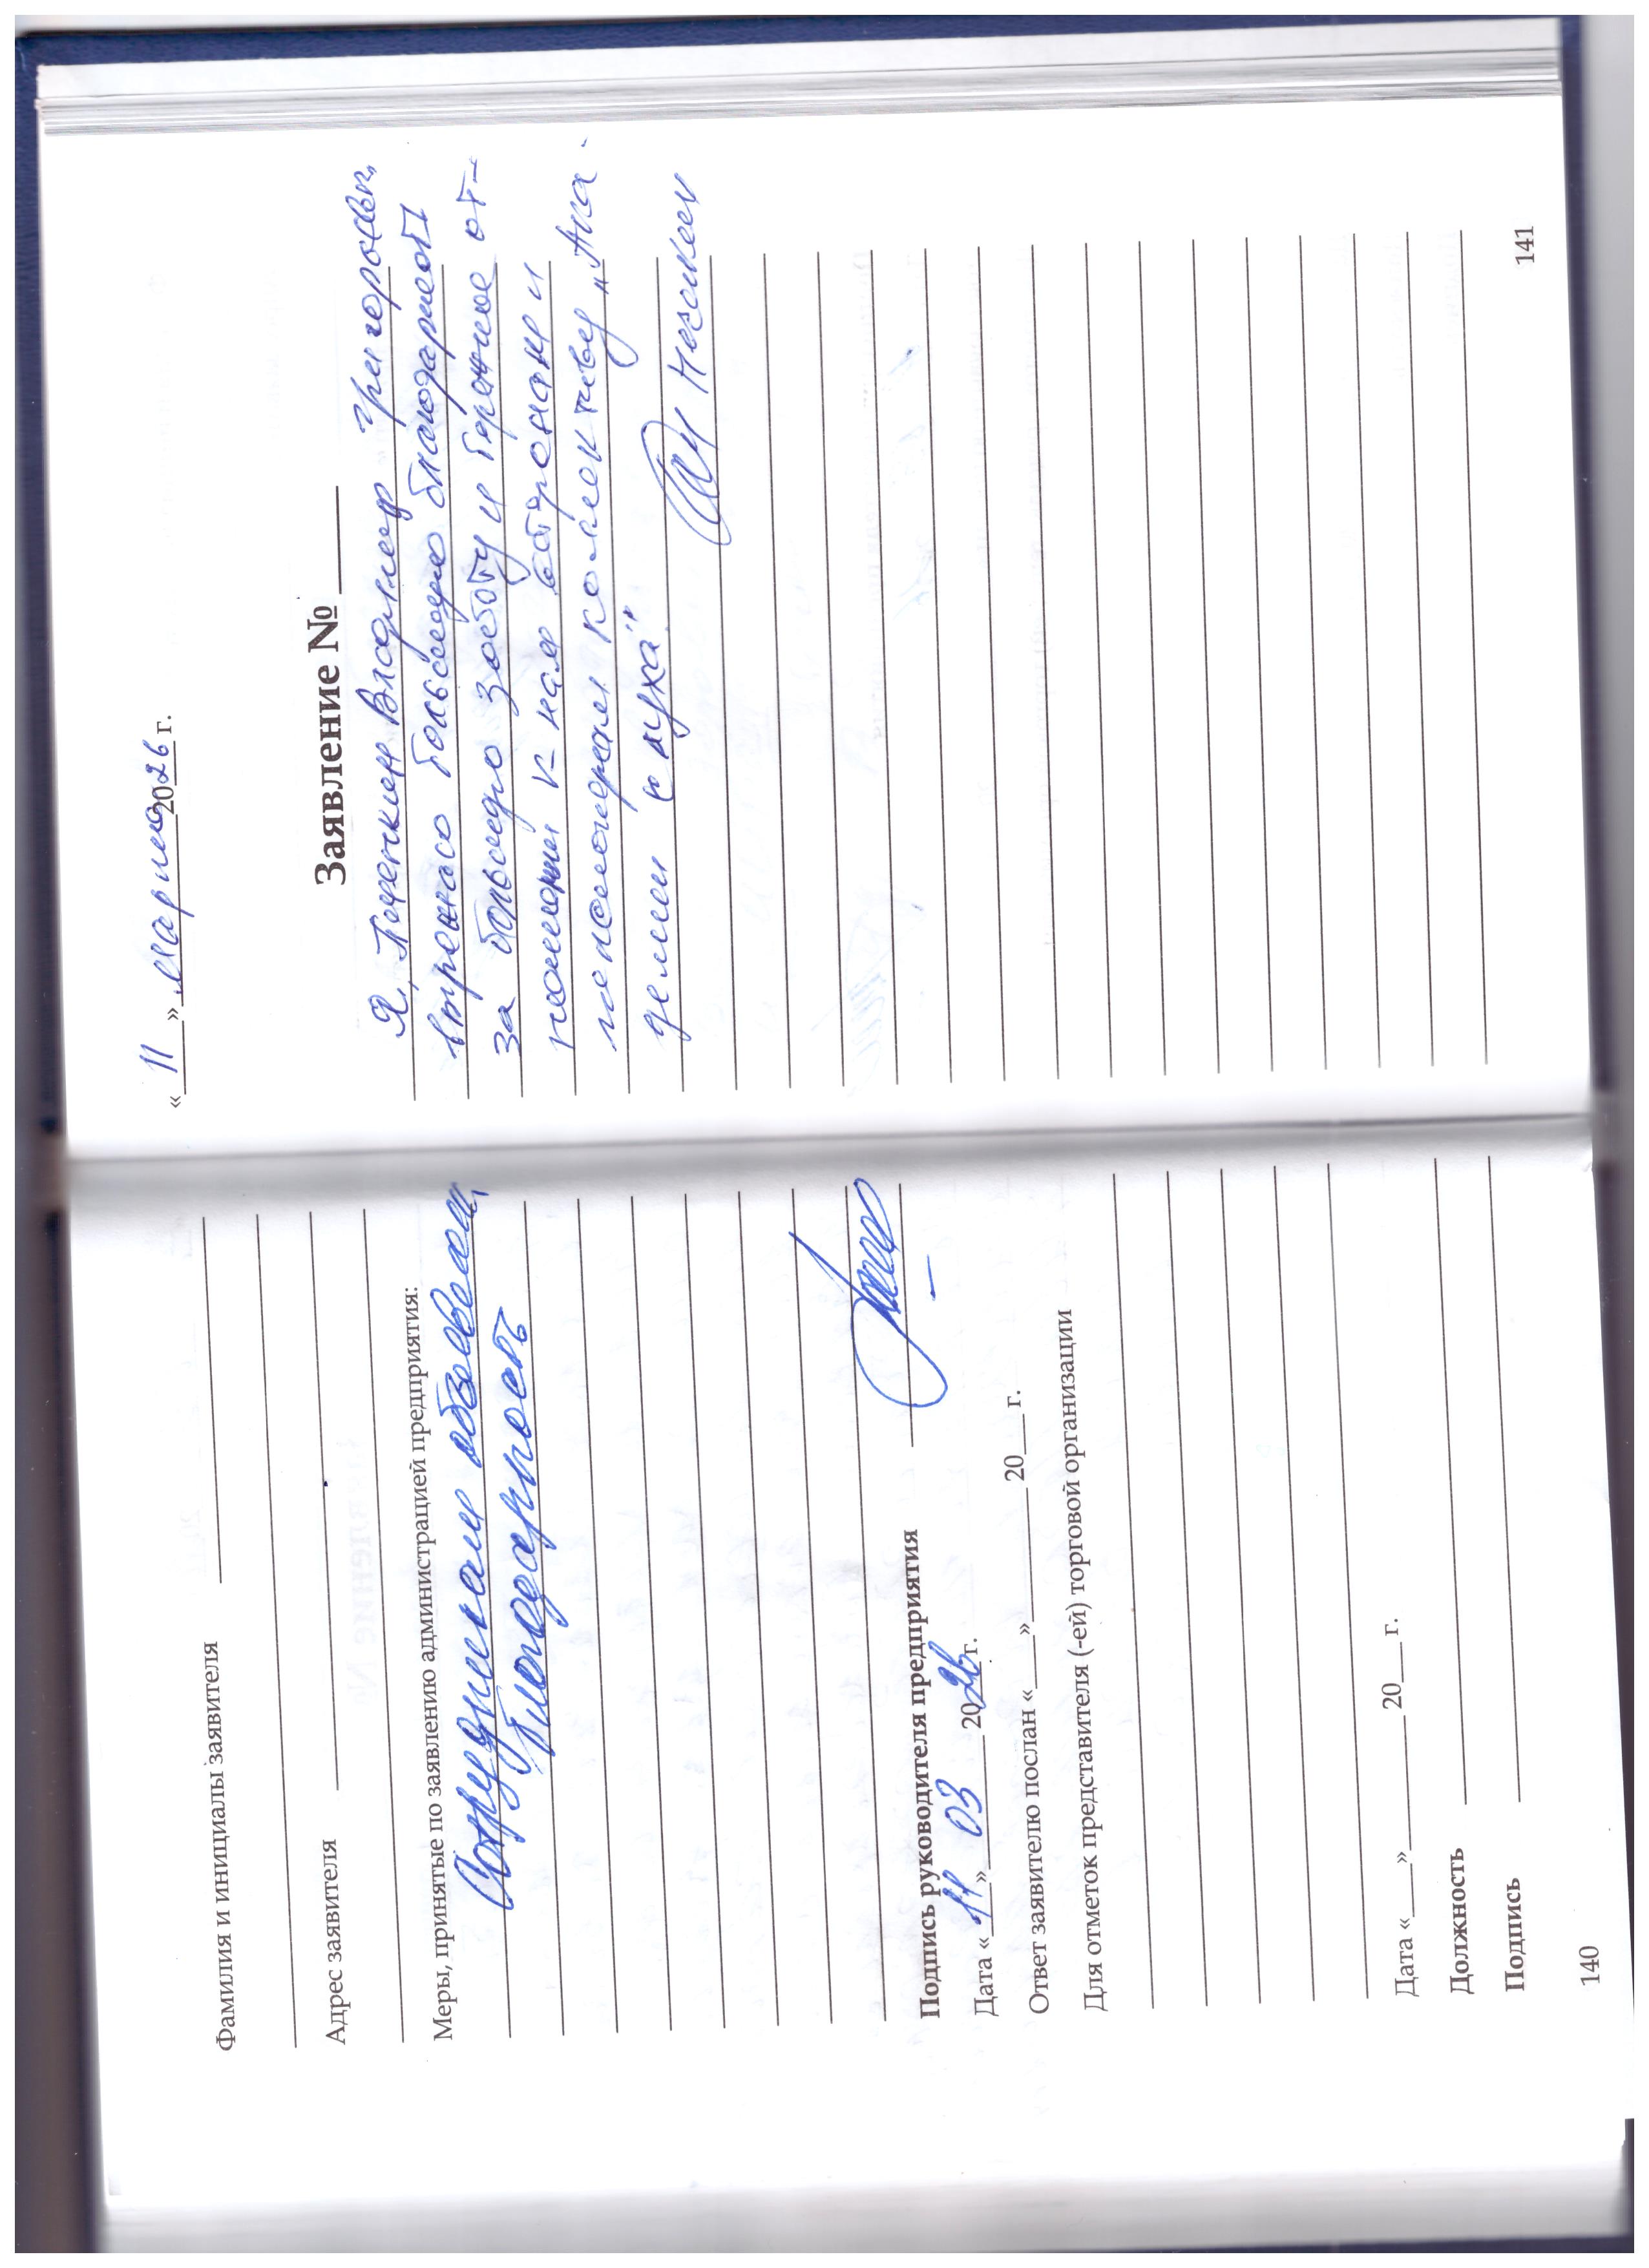 Фамилия и инициалы заявителя
Адрес заявителя
Меры, принятые по заявлению администрацией предприятия:
Сотрудникам объявлена
благодарность
Подпись руководителя предприятия
Дата «11» 03 2026 г.
Ответ заявителю послан «___» 20___ г.
Для отметок представителя (-ей) торговой организации
Дата «___» 20___ г.
Должность
Подпись
140
«11» марта 2026 г.
Заявление №
Я, Владимир Григорьевич
выражаю большую благодарность
за большую заботу и бережное от-
ношение к нам со стороны и
коллективу „Ака-
демии слуха"
141